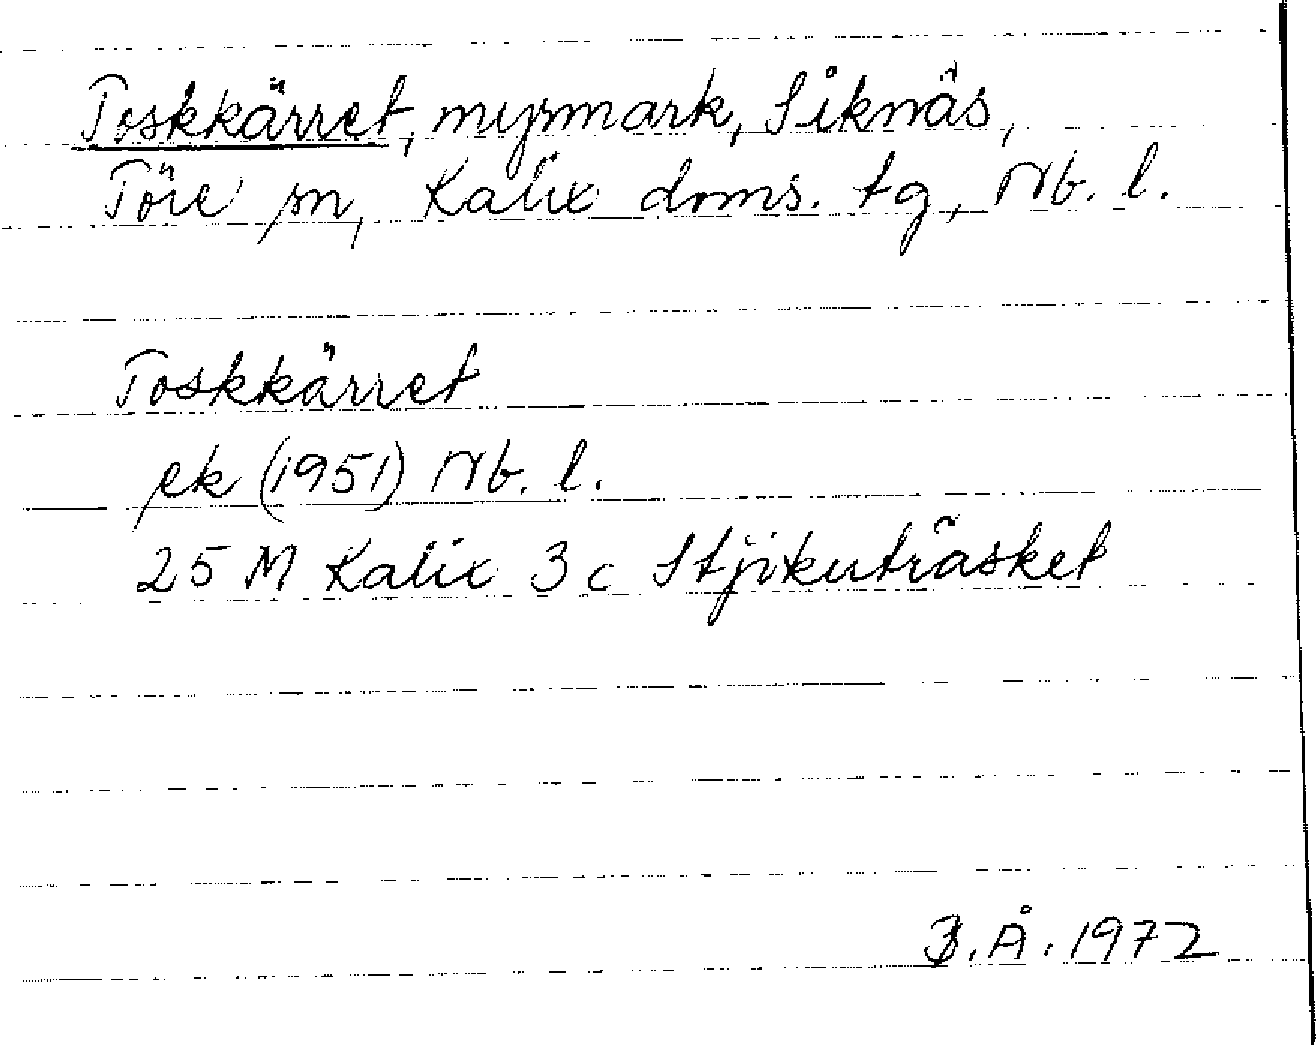 Toskkärret, myrmark, Siknäs,
Töre sn, Kalix doms. tg, Nb. l.
Toskkärret
ek (1951) Nb. l.
25 M Kalix 3 c Stjikuträsket
B. Å. 1972